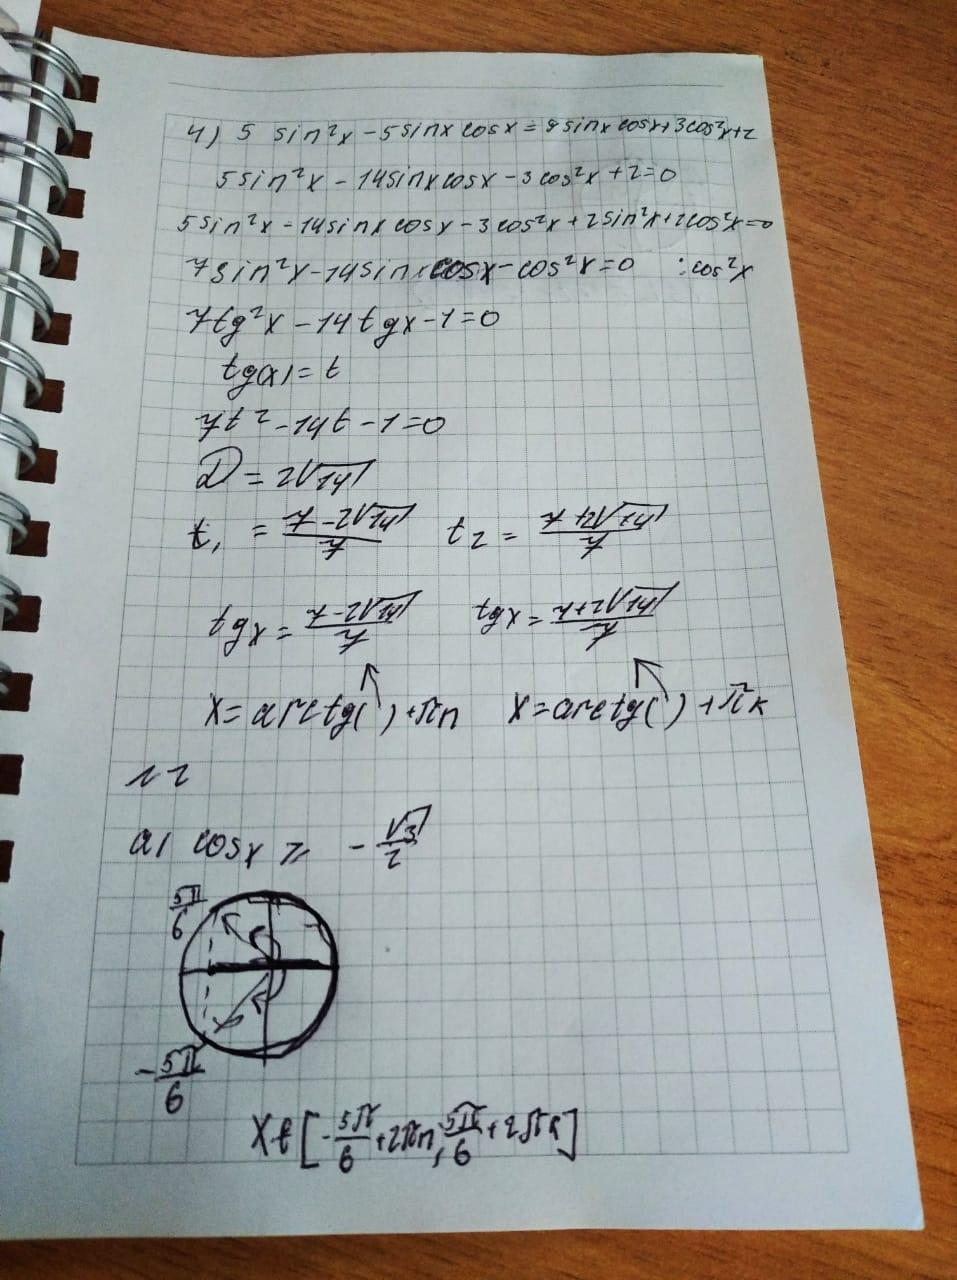 4) 5 sin²x - 5sinx cosx = 9sinx cosx + 3cos²x + 2
5sin²x - 14sinxcosx - 3cos²x + 2 = 0
5sin²x - 14sinx cosx - 3cos²x + 2sin²x + 2cos²x = 0
7sin²x - 14sinx cosx - cos²x = 0 :cos²x
7tg²x - 14tgx - 1 = 0
tg(x) = t
7t² - 14t - 1 = 0
D = 2√14
t₁ = (7 - 2√14)/7 t₂ = (7 + 2√14)/7
tgx = (7 - 2√14)/7 tgx = (7 + 2√14)/7
x = arctg( ) + πn x = arctg( ) + πk
а) cosx ≥ -√3/2
5π/6
-5π/6
x ∈ [-5π/6 + 2πn, 5π/6 + 2πk]